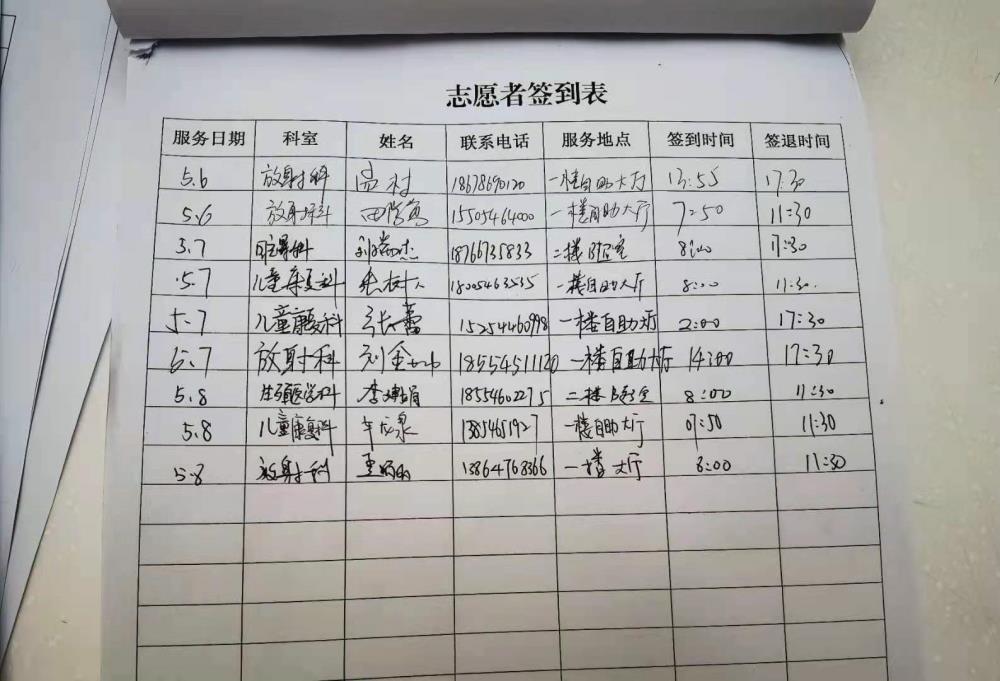 志愿者签到表
服务日期 科室 姓名 联系电话 服务地点 签到时间 签退时间
5.6 放射科 18678690120 一楼自助大厅 13:55 17:30
5.6 放射科 15505464000 一楼自助大厅 7:50 11:30
5.7 18766735833 二楼 8:00 17:30
5.7 儿童康复科 18005463535 一楼自助大厅 8:00 11:30
5.7 儿童康复科 张蕾 15254460998 一楼自助大厅 2:00 17:30
5.7 放射科 18554511120 一楼自助大厅 14:00 17:30
5.8 医学科 李 娟 18554602275 二楼 8:00 11:30
5.8 儿童康复科 13854651927 一楼自助大厅 07:50 11:30
5.8 放射科 13864768366 一楼大厅 8:00 11:30